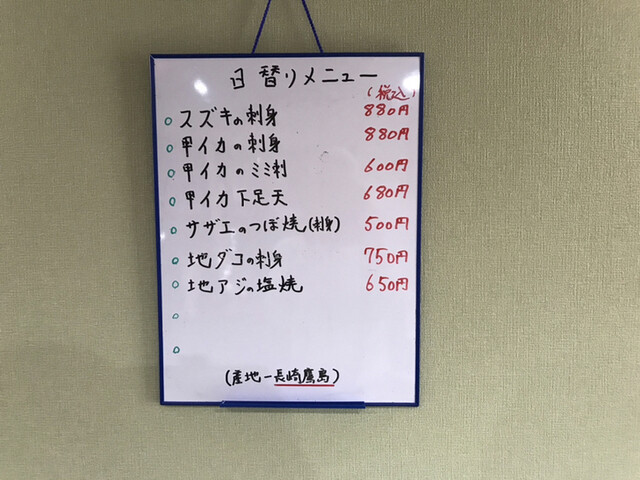 日替りメニュー
(税込)
スズキの刺身 880円
甲イカの刺身 880円
甲イカのミミ刺 600円
甲イカ下足天 680円
サザエのつぼ焼(刺身) 500円
地ダコの刺身 750円
地アジの塩焼 650円
(産地ー長崎鷹島)